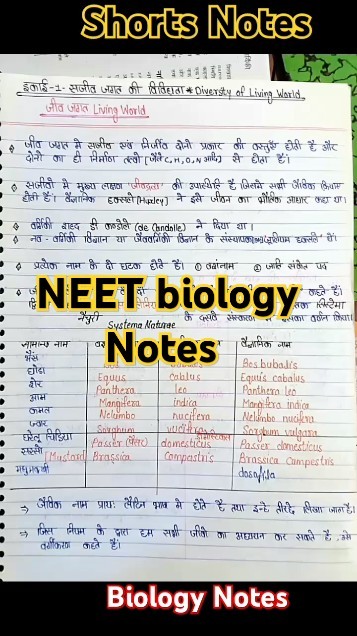 Shorts Notes
इकाई-1- सजीव जगत की विविधता * Diversity of Living World
जीव जगत Living World
जीव जगत में सजीव एवं निर्जीव दोनों प्रकार की वस्तुएँ होती हैं और
दोनों का ही निर्माण तत्वों (जैसे C, H, O, N आदि) से होता है।
सजीवों में मुख्य लक्षण जीवद्रव्य की उपस्थिति है जिसमें सभी जैविक क्रियाएं
होती हैं। वैज्ञानिक हक्सले (Huxley) ने इसे जीवन का भौतिक आधार कहा था।
वर्गिकी शब्द डी कण्डोले (de Candolle) ने दिया था।
नव-वर्गिकी विज्ञान या जैववर्गिकी विज्ञान के संस्थापक जूलियस हक्सले थे।
प्रत्येक नाम के दो घटक होते हैं। ① वंशनाम ② जाति संकेत पद
कहते हैं।
NEET biology
नेचुरी
Systema Naturae
के दसवें संस्करण में
वर्णन किया।
Notes
सामान्य नाम
वैज्ञानिक नाम
भैंस Bos bubalis
घोड़ा Equus cablus Equus cabalus
शेर Panthera leo Panthera leo
आम Mangifera indica Mangifera indica
कमल Nelumbo nucifera Nelumbo nucifera
ज्वार Sorghum Sorghum vulgara
घरेलू चिड़िया Passer domesticus Passer domesticus
सरसों [Mustard] Brassica Campastris Brassica Campestris
मधुमक्खी
⇒ जैविक नाम प्रायः लैटिन भाषा में होते हैं तथा इन्हें तिरछे लिखा जाता है।
⇒ जिस नियम के द्वारा हम सभी जीवों का अध्ययन कर सकते हैं, उसे
वर्गीकरण कहते हैं।
Biology Notes